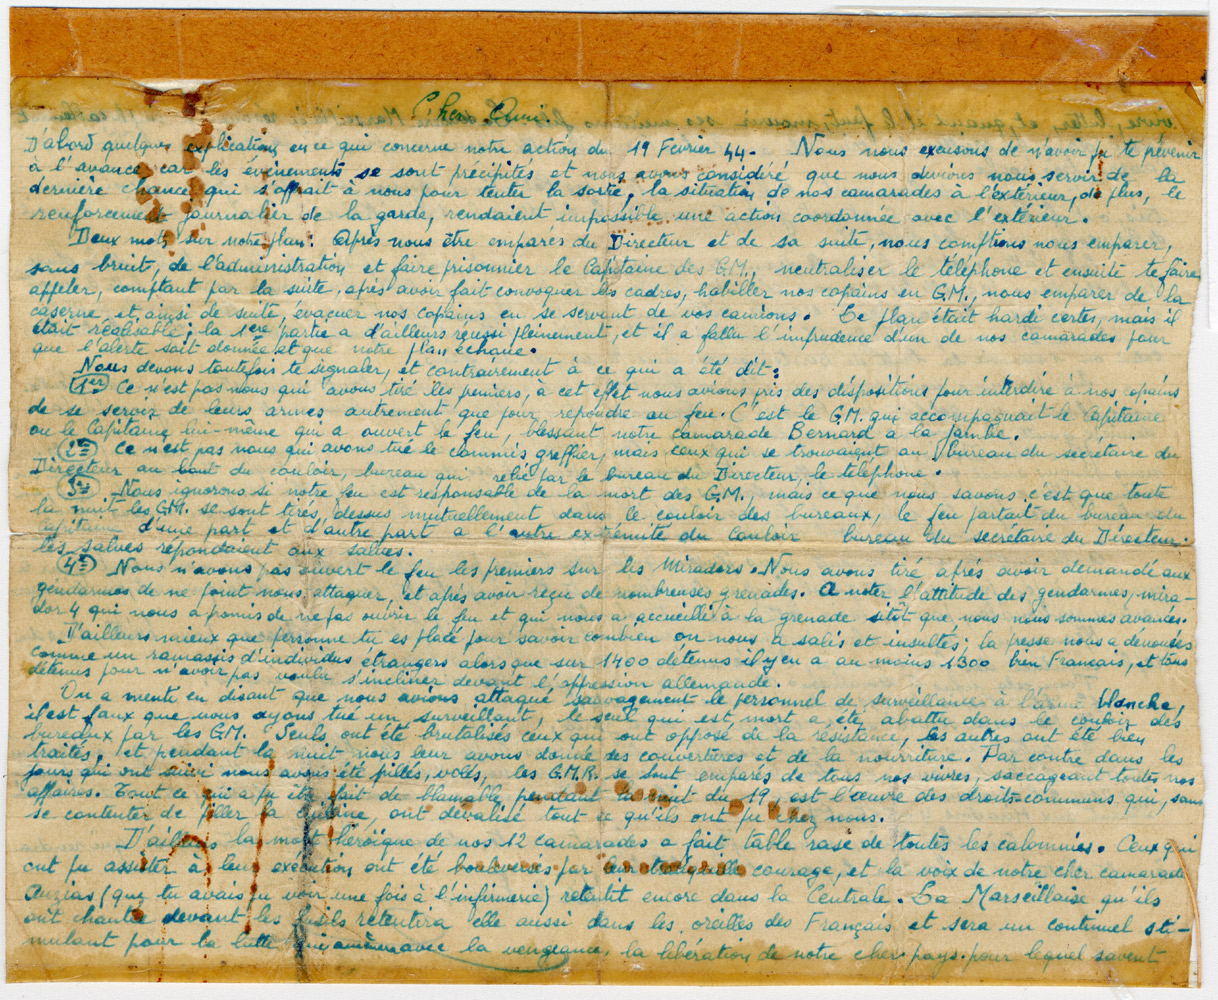 Cher Ami
D'abord quelques explications en ce qui concerne notre action du 19 Février 44. Nous nous excusons de n'avoir pu te prévenir
à l'avance, car les évènements se sont précipités et nous avons considéré que nous devions nous servir de la
dernière chance qui s'offrait à nous pour tenter la sortie, la situation de nos camarades à l'extérieur, de plus, le
renforcement journalier de la garde, rendaient impossible une action coordonnée avec l'extérieur.
Deux mots sur notre plan: Après nous être emparés du Directeur et de sa suite, nous comptions nous emparer,
sans bruit, de l'administration et faire prisonnier le Capitaine des G.M., neutraliser le téléphone et ensuite te faire
appeler, comptant par la suite, après avoir fait convoquer les cadres, habiller nos copains en G.M., nous emparer de la
caserne et, ainsi de suite, évacuer nos copains en se servant de vos camions. Le plan était hardi certes, mais il
était réalisable; la 1ère partie a d'ailleurs réussi pleinement, et il a fallu l'imprudence d'un de nos camarades pour
que l'alerte soit donnée et que notre plan échoue.
Nous devons toutefois te signaler, et contrairement à ce qui a été dit:
1er Ce n'est pas nous qui avons tiré les premiers, à cet effet nous avions pris des dispositions pour interdire à nos copains
de se servir de leurs armes autrement que pour répondre au feu. C'est le G.M. qui accompagnait le Capitaine
ou le Capitaine lui-même qui a ouvert le feu, blessant notre camarade Bernard a la jambe.
2me Ce n'est pas nous qui avons tué le commis greffier, mais ceux qui se trouvaient au bureau du secrétaire du
Directeur au bout du couloir, bureau qui relié par le bureau du Directeur, le téléphone.
3me Nous ignorons si notre feu est responsable de la mort des G.M., mais ce que nous savons c'est que toute
la nuit les G.M. se sont tirés dessus mutuellement dans le couloir des bureaux, le feu partait du bureau du
Capitaine d'une part et d'autre part a l'autre extrémité du couloir bureau du secrétaire du Directeur.
les salves répondaient aux salves.
4me Nous n'avons pas ouvert le feu les premiers sur les Miradors. Nous avons tiré après avoir demandé aux
gendarmes de ne point nous attaquer, et après avoir reçu de nombreuses grenades. A noter l'attitude des gendarmes, mira-
dor 4 qui nous a promis de ne pas ouvrir le feu et qui nous a accueilli à la grenade sitôt que nous nous sommes avancés.
D'ailleurs mieux que personne tu es placé pour savoir combien on nous a salis et insultés; la presse nous a dénoncés
comme un ramassis d'individus étrangers alors que sur 1400 détenus il y en a au moins 1300 bien Français, et tous
détenus pour n'avoir pas voulu s'incliner devant l'oppression allemande.
On a menti en disant que nous avions attaqué sauvagement le personnel de surveillance à l'arme blanche,
il est faux que nous ayons tué un surveillant, le seul qui est mort a été abattu dans le couloir des
bureaux par les G.M. Seuls ont été brutalisés ceux qui ont opposé de la résistance, les autres ont été bien
traités, et pendant la nuit nous leur avons donné des couvertures et de la nourriture. Par contre dans les
jours qui ont suivi nous avons été pillés, volés, les G.M.R. se sont emparés de tous nos vivres, saccageant toutes nos
affaires. Tout ce qui a pu être fait de blamable pendant la nuit du 19, est l'œuvre des droits-communs qui, sans
se contenter de piller la cuisine, ont dévalisé tout ce qu'ils ont pu chez nous.
D'ailleurs la mort héroïque de nos 12 camarades a fait table rase de toutes les calomnies. Ceux qui
ont pu assister à leur exécution ont été bouleversés par leur tranquille courage, et la voix de notre cher camarade
Auzias (que tu avais pu voir une fois à l'infirmerie) retentit encore dans la Centrale. La Marseillaise qu'ils
ont chantée devant les fusils retentira elle aussi dans les oreilles des Français et sera un continuel sti-
mulant pour la lutte qui amènera avec la vengeance, la libération de notre cher pays pour lequel savent